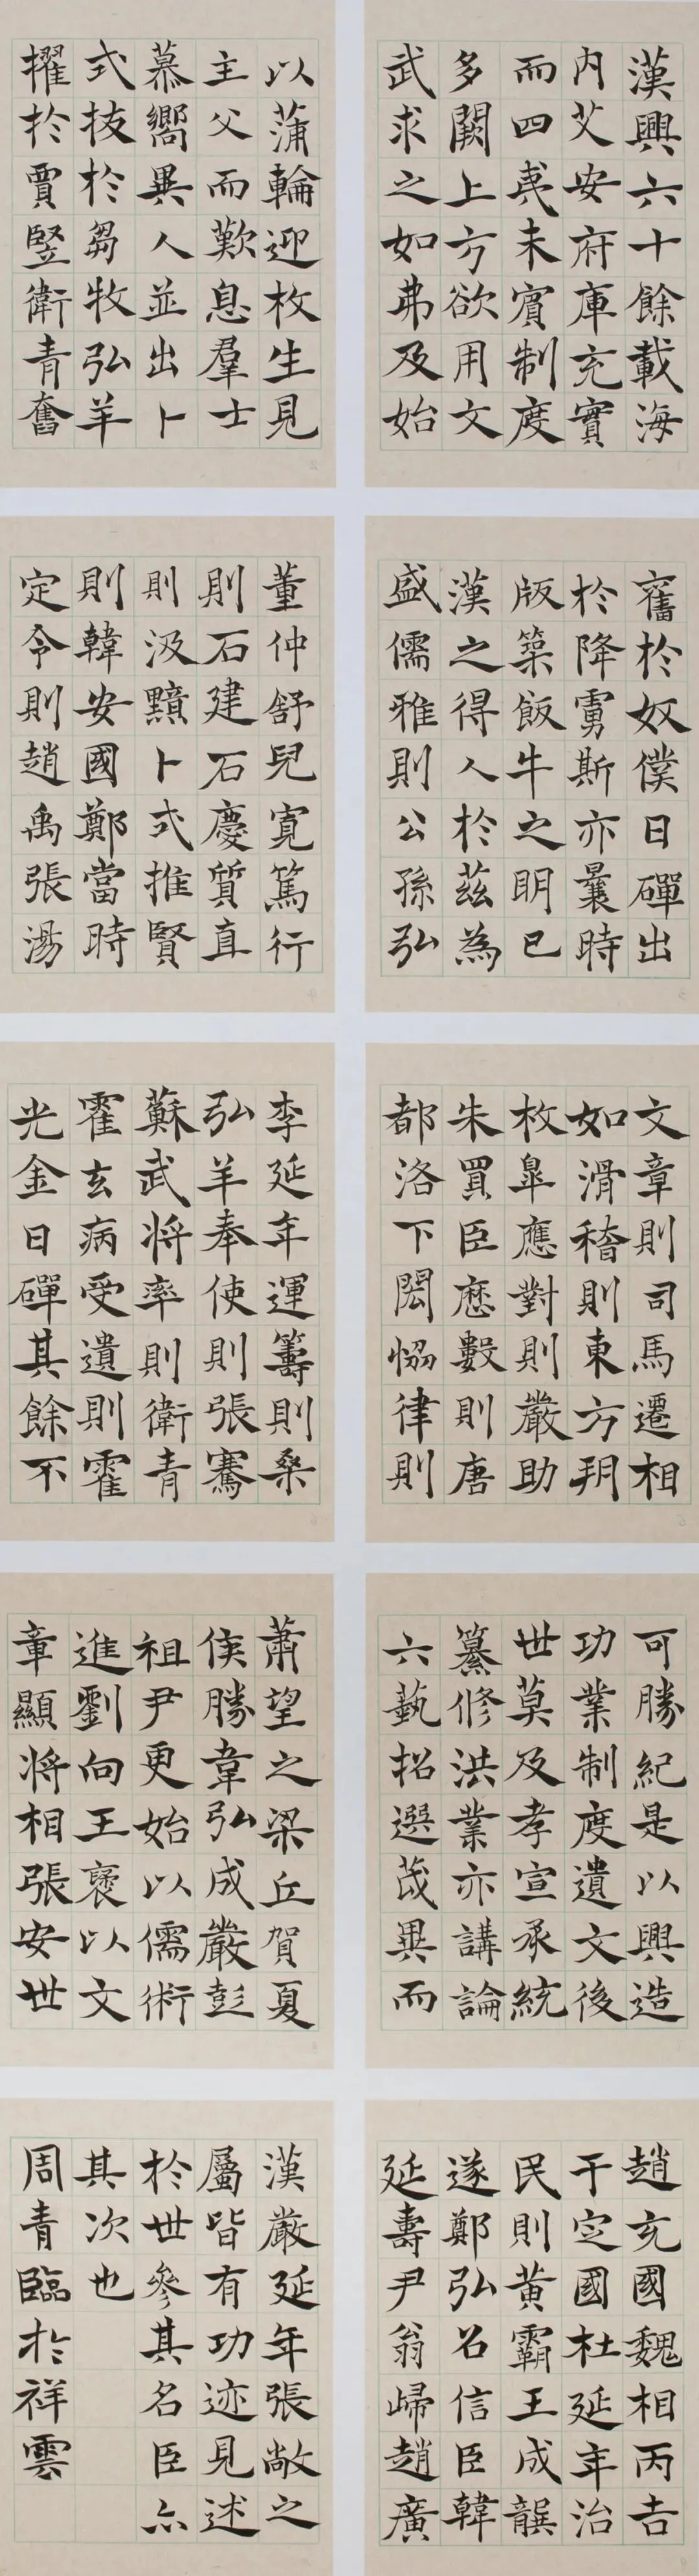 漢興六十餘載海
内艾安府庫充實
而四夷未賓制度
多闕上方欲用文
武求之如弗及始
以蒲輪迎枚生見
主父而歎息羣士
慕嚮異人並出卜
式抜於芻牧弘羊
擢於賈豎衛青奮
奮於奴僕日磾出
於降虜斯亦曩時
版築飯牛之明已
漢之得人於茲為
盛儒雅則公孫弘
董仲舒兒寬篤行
則石建石慶質直
則汲黯卜式推賢
則韓安國鄭當時
定令則趙禹張湯
文章則司馬遷相
如滑稽則東方朔
枚臯應對則嚴助
朱買臣歷數則唐
都洛下閎恊律則
李延年運籌則桑
弘羊奉使則張騫
蘇武将率則衛青
霍玄病受遺則霍
光金日磾其餘不
可勝紀是以興造
功業制度遺文後
世莫及孝宣承統
纂修洪業亦講論
六藝招選茂異而
蕭望之梁丘賀夏
侯勝韋弘成嚴彭
祖尹更始以儒術
進劉向王襃以文
章顯将相張安世
趙充國魏相丙吉
于定國杜延年治
民則黃霸王成龔
遂鄭弘召信臣韓
延壽尹翁歸趙廣
漢嚴延年張敞之
屬皆有功迹見述
於世參其名臣亦
其次也
周青臨於祥雲